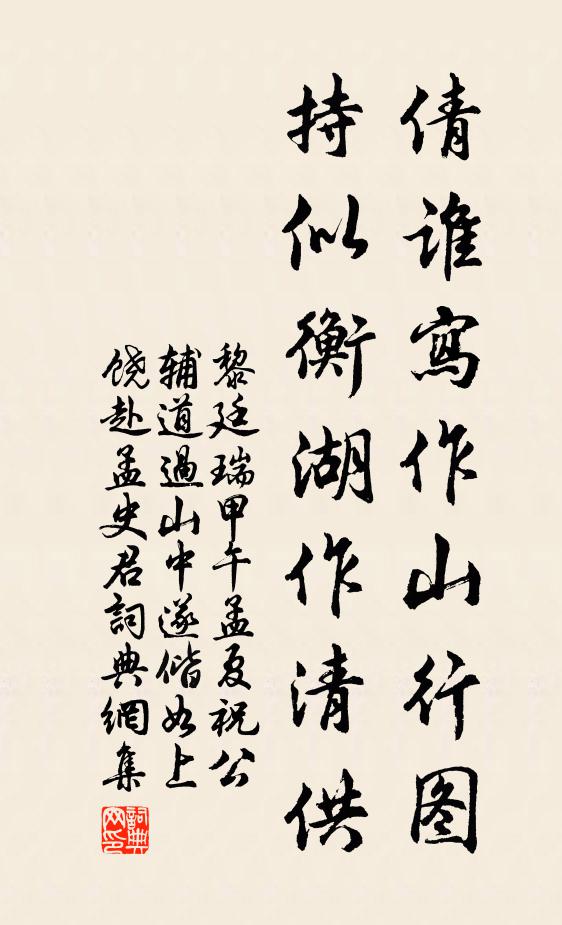 倩谁寫作山行图
持似衡湖作清供
黎廷瑞甲午孟夏祝公
辅道過山中遂偕如上
饶赴孟史君詞典網集
詞典网印